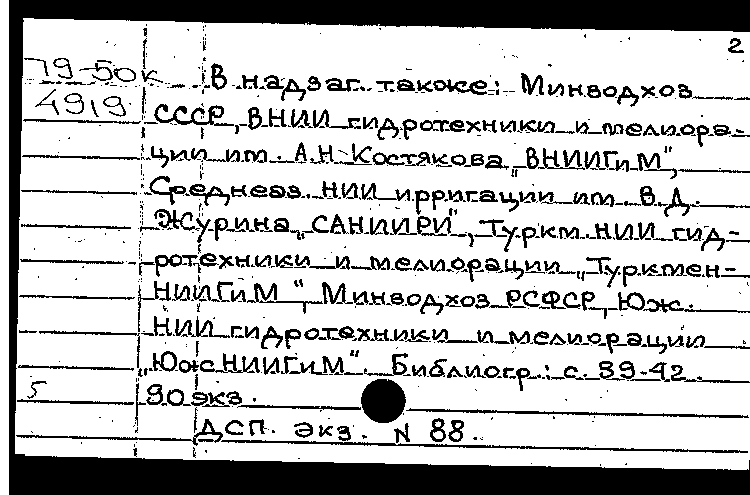 2
79-50к В надзаг. также: Минводхоз
4919 СССР, ВНИИ гидротехники и мелиора-
ции им. А.Н. Костякова „ВНИИГиМ“,
Среднеаз. НИИ ирригации им. В.Д.
Журина „САНИИРИ“, Туркм. НИИ гид-
ротехники и мелиорации „Туркмен-
НИИГиМ“, Минводхоз РСФСР, Юж.
НИИ гидротехники и мелиорации
„ЮжНИИГиМ“. Библиогр.: с. 39-42.
5 90 экз.
ДСП. Экз. N 88.